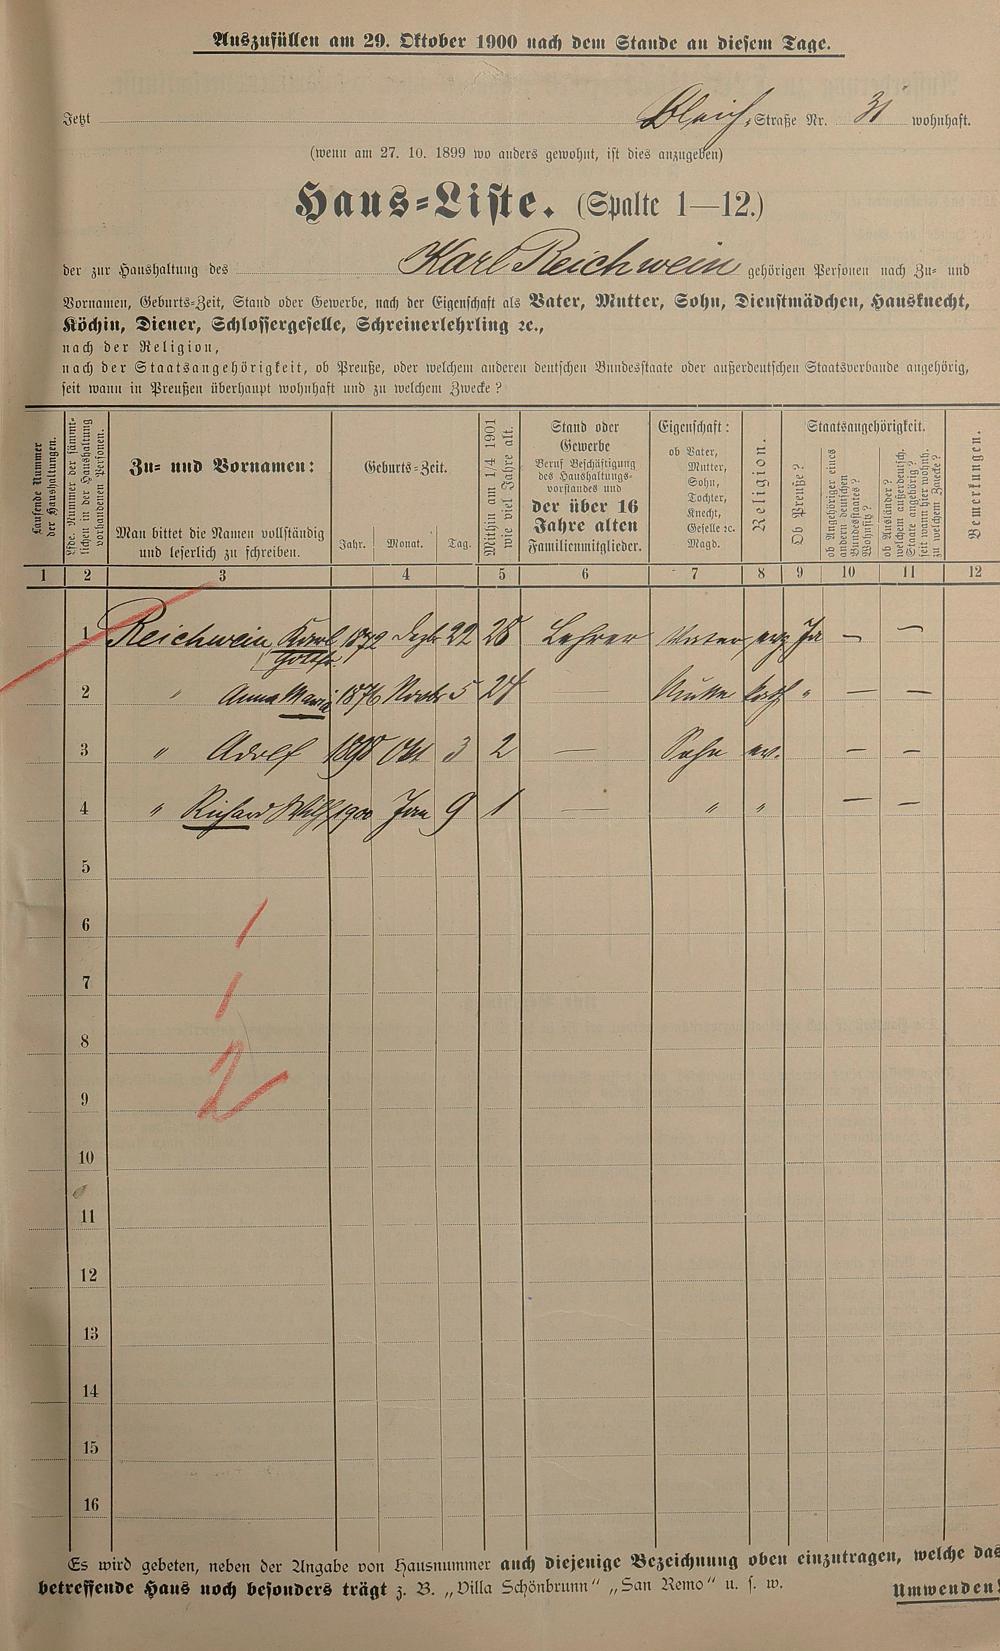 Auszufüllen am 29. Oktober 1900 nach dem Stande an diesem Tage.
Jetzt Bleich, Straße Nr. 31 wohnhaft.
(wenn am 27. 10. 1899 wo anders gewohnt, ist dies anzugeben)
Haus-Liste. (Spalte 1—12.)
der zur Haushaltung des Karl Reichwein gehörigen Personen nach Zu- und
Vornamen, Geburts-Zeit, Stand oder Gewerbe, nach der Eigenschaft als Vater, Mutter, Sohn, Dienstmädchen, Hausknecht,
Köchin, Diener, Schlossergeselle, Schreinerlehrling ꝛc.,
nach der Religion,
nach der Staatsangehörigkeit, ob Preuße, oder welchem anderen deutschen Bundesstaate oder außerdeutschen Staatsverbande angehörig,
seit wann in Preußen überhaupt wohnhaft und zu welchem Zwecke?
Laufende Nummer
der Haushaltungen.
Lfde. Nummer der sämmt-
lichen in der Haushaltung
vorhandenen Personen.
Zu- und Vornamen:
Man bittet die Namen vollständig
und leserlich zu schreiben.
Geburts-Zeit.
Jahr. Monat. Tag.
Mithin am 1/4 1901
wie viel Jahre alt.
Stand oder
Gewerbe
Beruf Beschäftigung
des Haushaltungs-
vorstandes und
der über 16
Jahre alten
Familienmitglieder.
Eigenschaft:
ob Vater,
Mutter,
Sohn,
Tochter,
Knecht,
Geselle ꝛc.
Magd.
Religion.
Staatsangehörigkeit.
Ob Preuße?
ob Angehöriger eines
andern deutschen
Bundesstaates?
Wohnsitz?
ob Ausländer?
welchem außerdeutsch.
Staate angehörig?
seit wann hier wohnh.
zu welchem Zwecke?
Bemerkungen.
1 2 3 4 5 6 7 8 9 10 11 12
1 Reichwein, Karl 1872 Dezbr 22 28 Lehrer Vater evg Ja — —
Gottfr.
2 " Anna Maria 1876 Novbr 5 24 — Mutter kath " — —
3 " Adolf 1898 Okt 3 2 — Sohn ev. — —
4 " Richard Wilh 1900 Jan 9 1 — " " — —
5
6 1
7 1
8
9 2
10
11
12
13
14
15
16
Es wird gebeten, neben der Angabe von Hausnummer auch diejenige Bezeichnung oben einzutragen, welche das
betreffende Haus noch besonders trägt z. B. „Villa Schönbrunn“ „San Remo“ u. s. w.
Umwenden!